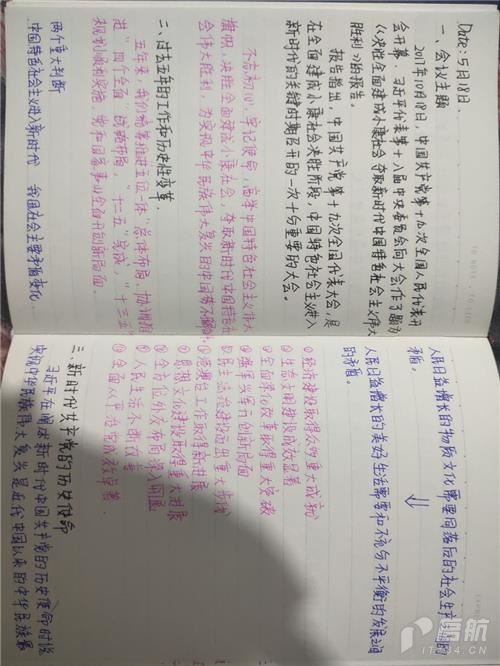 Date: 5月18日.
一、会议主题
2017年10月18日,中国共产党第十九次全国人民代表
会开幕。习近平代表第十八届中央委员会向大会作了题为
《决胜全面建成小康社会 夺取新时代中国特色社会主义伟大
胜利》的报告。
报告指出,中国共产党第十九次全国代表大会,是
在全面建成小康社会决胜阶段、中国特色社会主义进入
新时代的关键时期召开的一次十分重要的大会。
不忘初心,牢记使命,高举中国特色社会主义伟大
旗帜,决胜全面建成小康社会,夺取新时代中国特色
会伟大胜利,为实现中华民族伟大复兴的中国梦不懈
二、过去五年的工作和历史性变革.
五年来,我们统筹推进"五位一体"总体布局、协调推
进"四个全面"战略布局,"十二五"完成,"十三五"
规划顺利实施,党和国家事业全面开创新局面。
两个重大判断
中国特色社会主义进入新时代 我国社会主要矛盾变化
人民日益增长的物质文化需要同落后的社会生产之间的
矛盾。
⇓
人民日益增长的美好生活需要和不充分不平衡的发展之间
的矛盾。
①经济建设取得重大成就
②生态文明建设成效显著
③全面深化改革取得重大突破
④强军兴军开创新局面
⑤民主法治建设迈出重大步伐
⑥港澳台工作取得新进展
⑦思想文化建设取得重大进展
⑧全方位外交布局深入开展
⑨人民生活不断改善
⑩全面从严治党成效卓著
三、新时代共产党的历史使命
习近平在阐述新时代中国共产党的历史使命时说
实现中华民族伟大复兴是近代中国以来的中华民族最
IT534.CN